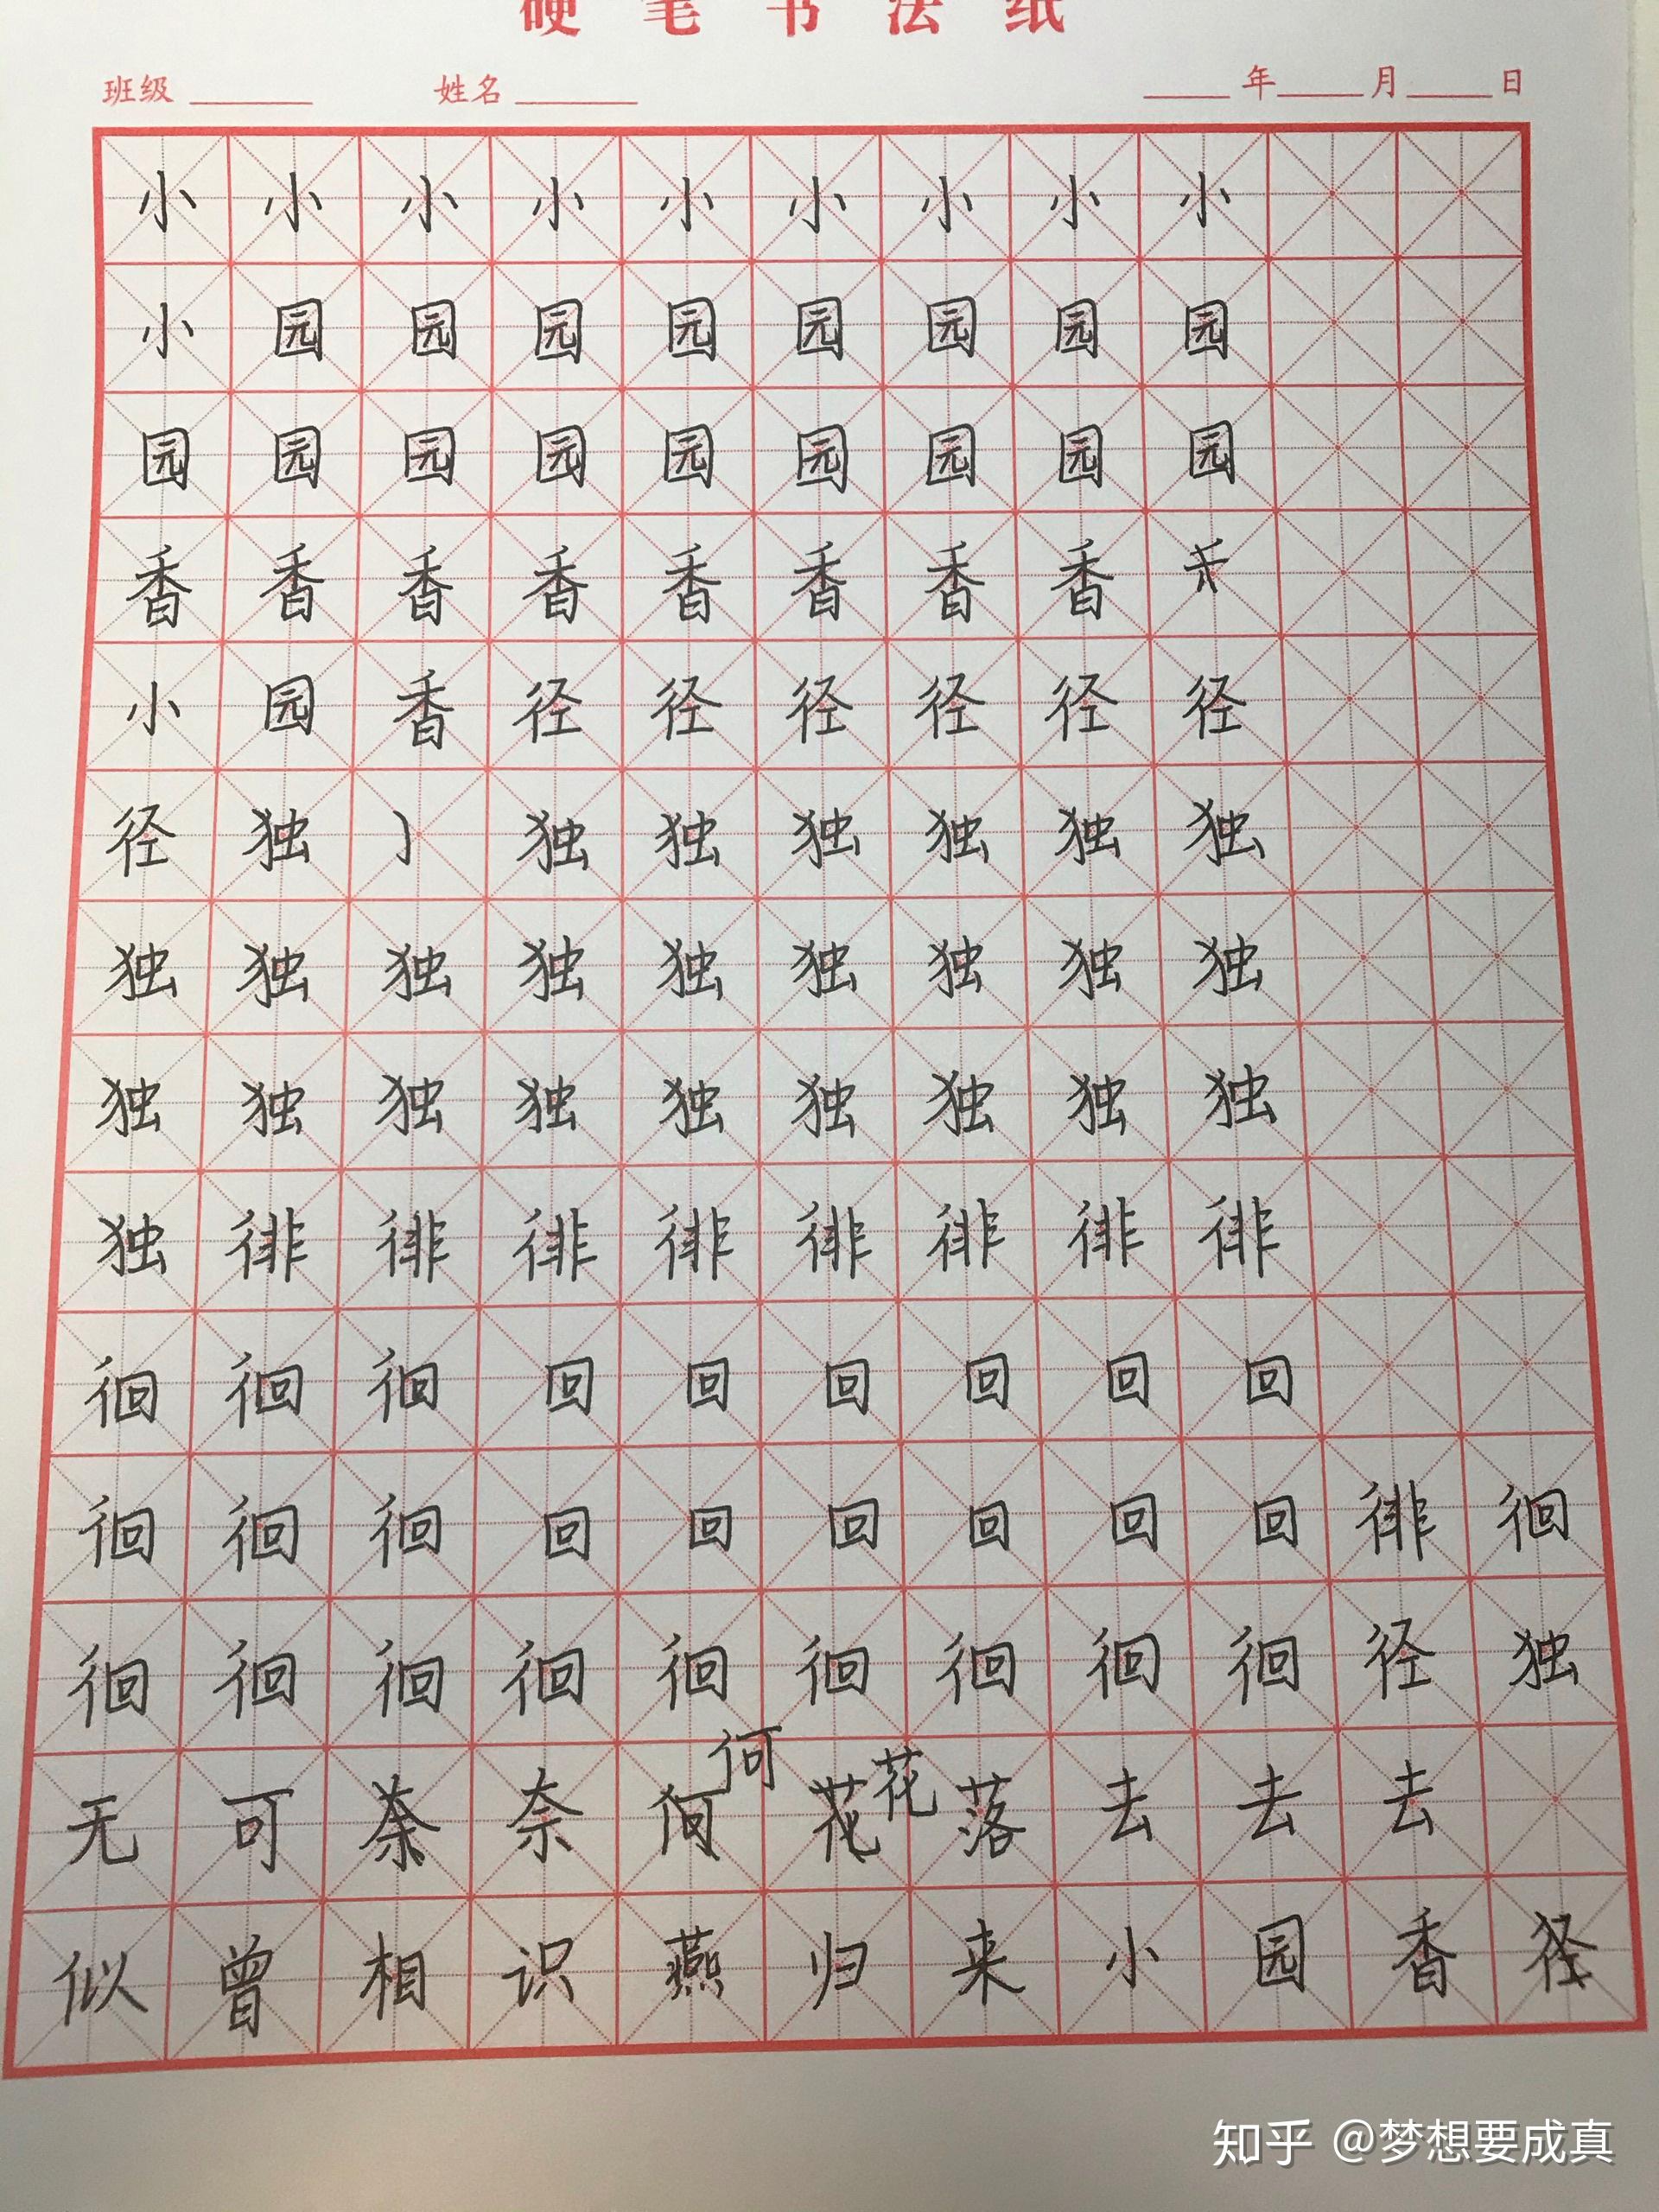 硬笔书法纸
班级 姓名 年 月 日
小小小小小小小小小
小园园园园园园园园
园园园园园园园园园
香香香香香香香香
小园香径径径径径径
径独独独独独独独
独独独独独独独独独
独独独独独独独独独
独徘徘徘徘徘徘徘徘
徊徊徊回回回回回回
徊徊徊回回回回回回徘徊
徊徊徊徊徊徊徊徊徊径独
无可奈奈何何花花落去去去
似曾相识燕归来小园香径
知乎 @梦想要成真